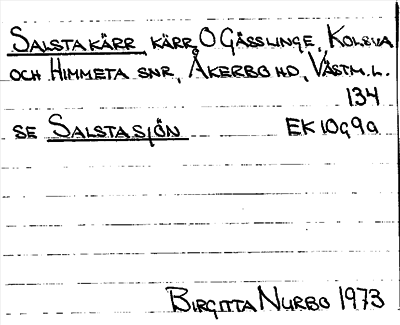 SALSTAKÄRR, KÄRR O GÄSSLINGE, KOLSVA
OCH HIMMETA SNR, ÅKERBO HD, VÄSTM.L.
134
SE SALSTASJÖN EK10G9a
BIRGITTA NURBO 1973